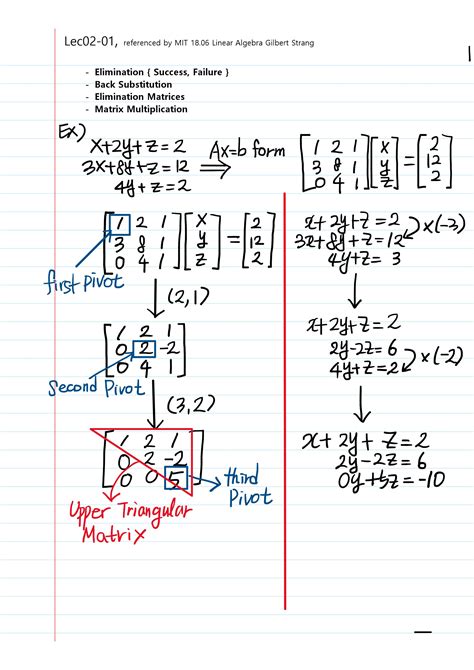 Lec02-01, referenced by MIT 18.06 Linear Algebra Gilbert Strang
1
- Elimination { Success, Failure }
- Back Substitution
- Elimination Matrices
- Matrix Multiplication
Ex)
x+2y+z=2
3x+8y+z=12
4y+z=2
⇒ Ax=b form
[1 2 1] [x] = [2]
[3 8 1] [y] = [12]
[0 4 1] [z] = [2]
[1 2 1] [x] = [2]
[3 8 1] [y] = [12]
[0 4 1] [z] = [2]
first pivot
↓ (2,1)
[1 2 1]
[0 2 -2]
[0 4 1]
Second Pivot
↓ (3,2)
[1 2 1]
[0 2 -2]
[0 0 5]
→ third
Pivot
Upper Triangular
Matrix
x+2y+z=2
3x+8y+z=12 ×(-3)
4y+z=3
↓
x+2y+z=2
2y-2z=6
4y+z=2 ×(-2)
↓
x+2y+z=2
2y-2z=6
0y+5z=-10